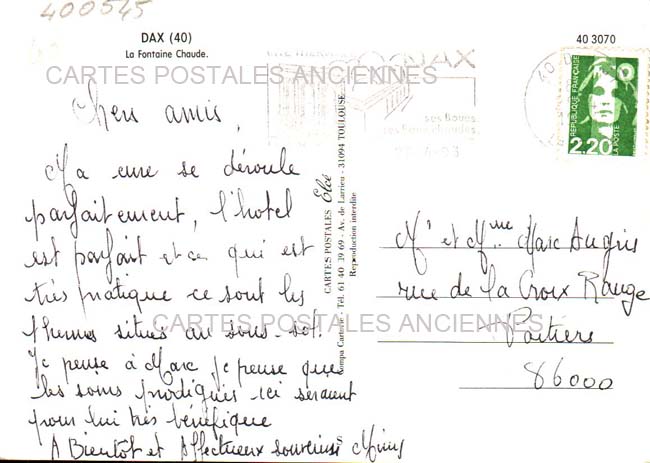 400545
DAX (40)
La Fontaine Chaude.
40 3070
DAX
ses Boues
ses Eaux chaudes
CARTES POSTALES ANCIENNES
REPUBLIQUE FRANÇAISE
LA POSTE
2,20
Chers amis,
Ma cure se déroule
parfaitement, l'hotel
est parfait et ce qui est
très pratique ce sont les
thermes situés au sous-sol.
Je pense à Marc je pense que
les soins prodigués ici seraient
pour lui très bénéfique
A Bientôt et Affectueux souvenirs
CARTES POSTALES Elcé
Tél. 61 40 39 69 - Av. de Larrieu - 31094 TOULOUSE
Reproduction interdite
Mr et Mme Marc Augris
rue de la Croix Rouge
Poitiers
86000
CARTES POSTALES ANCIENNES